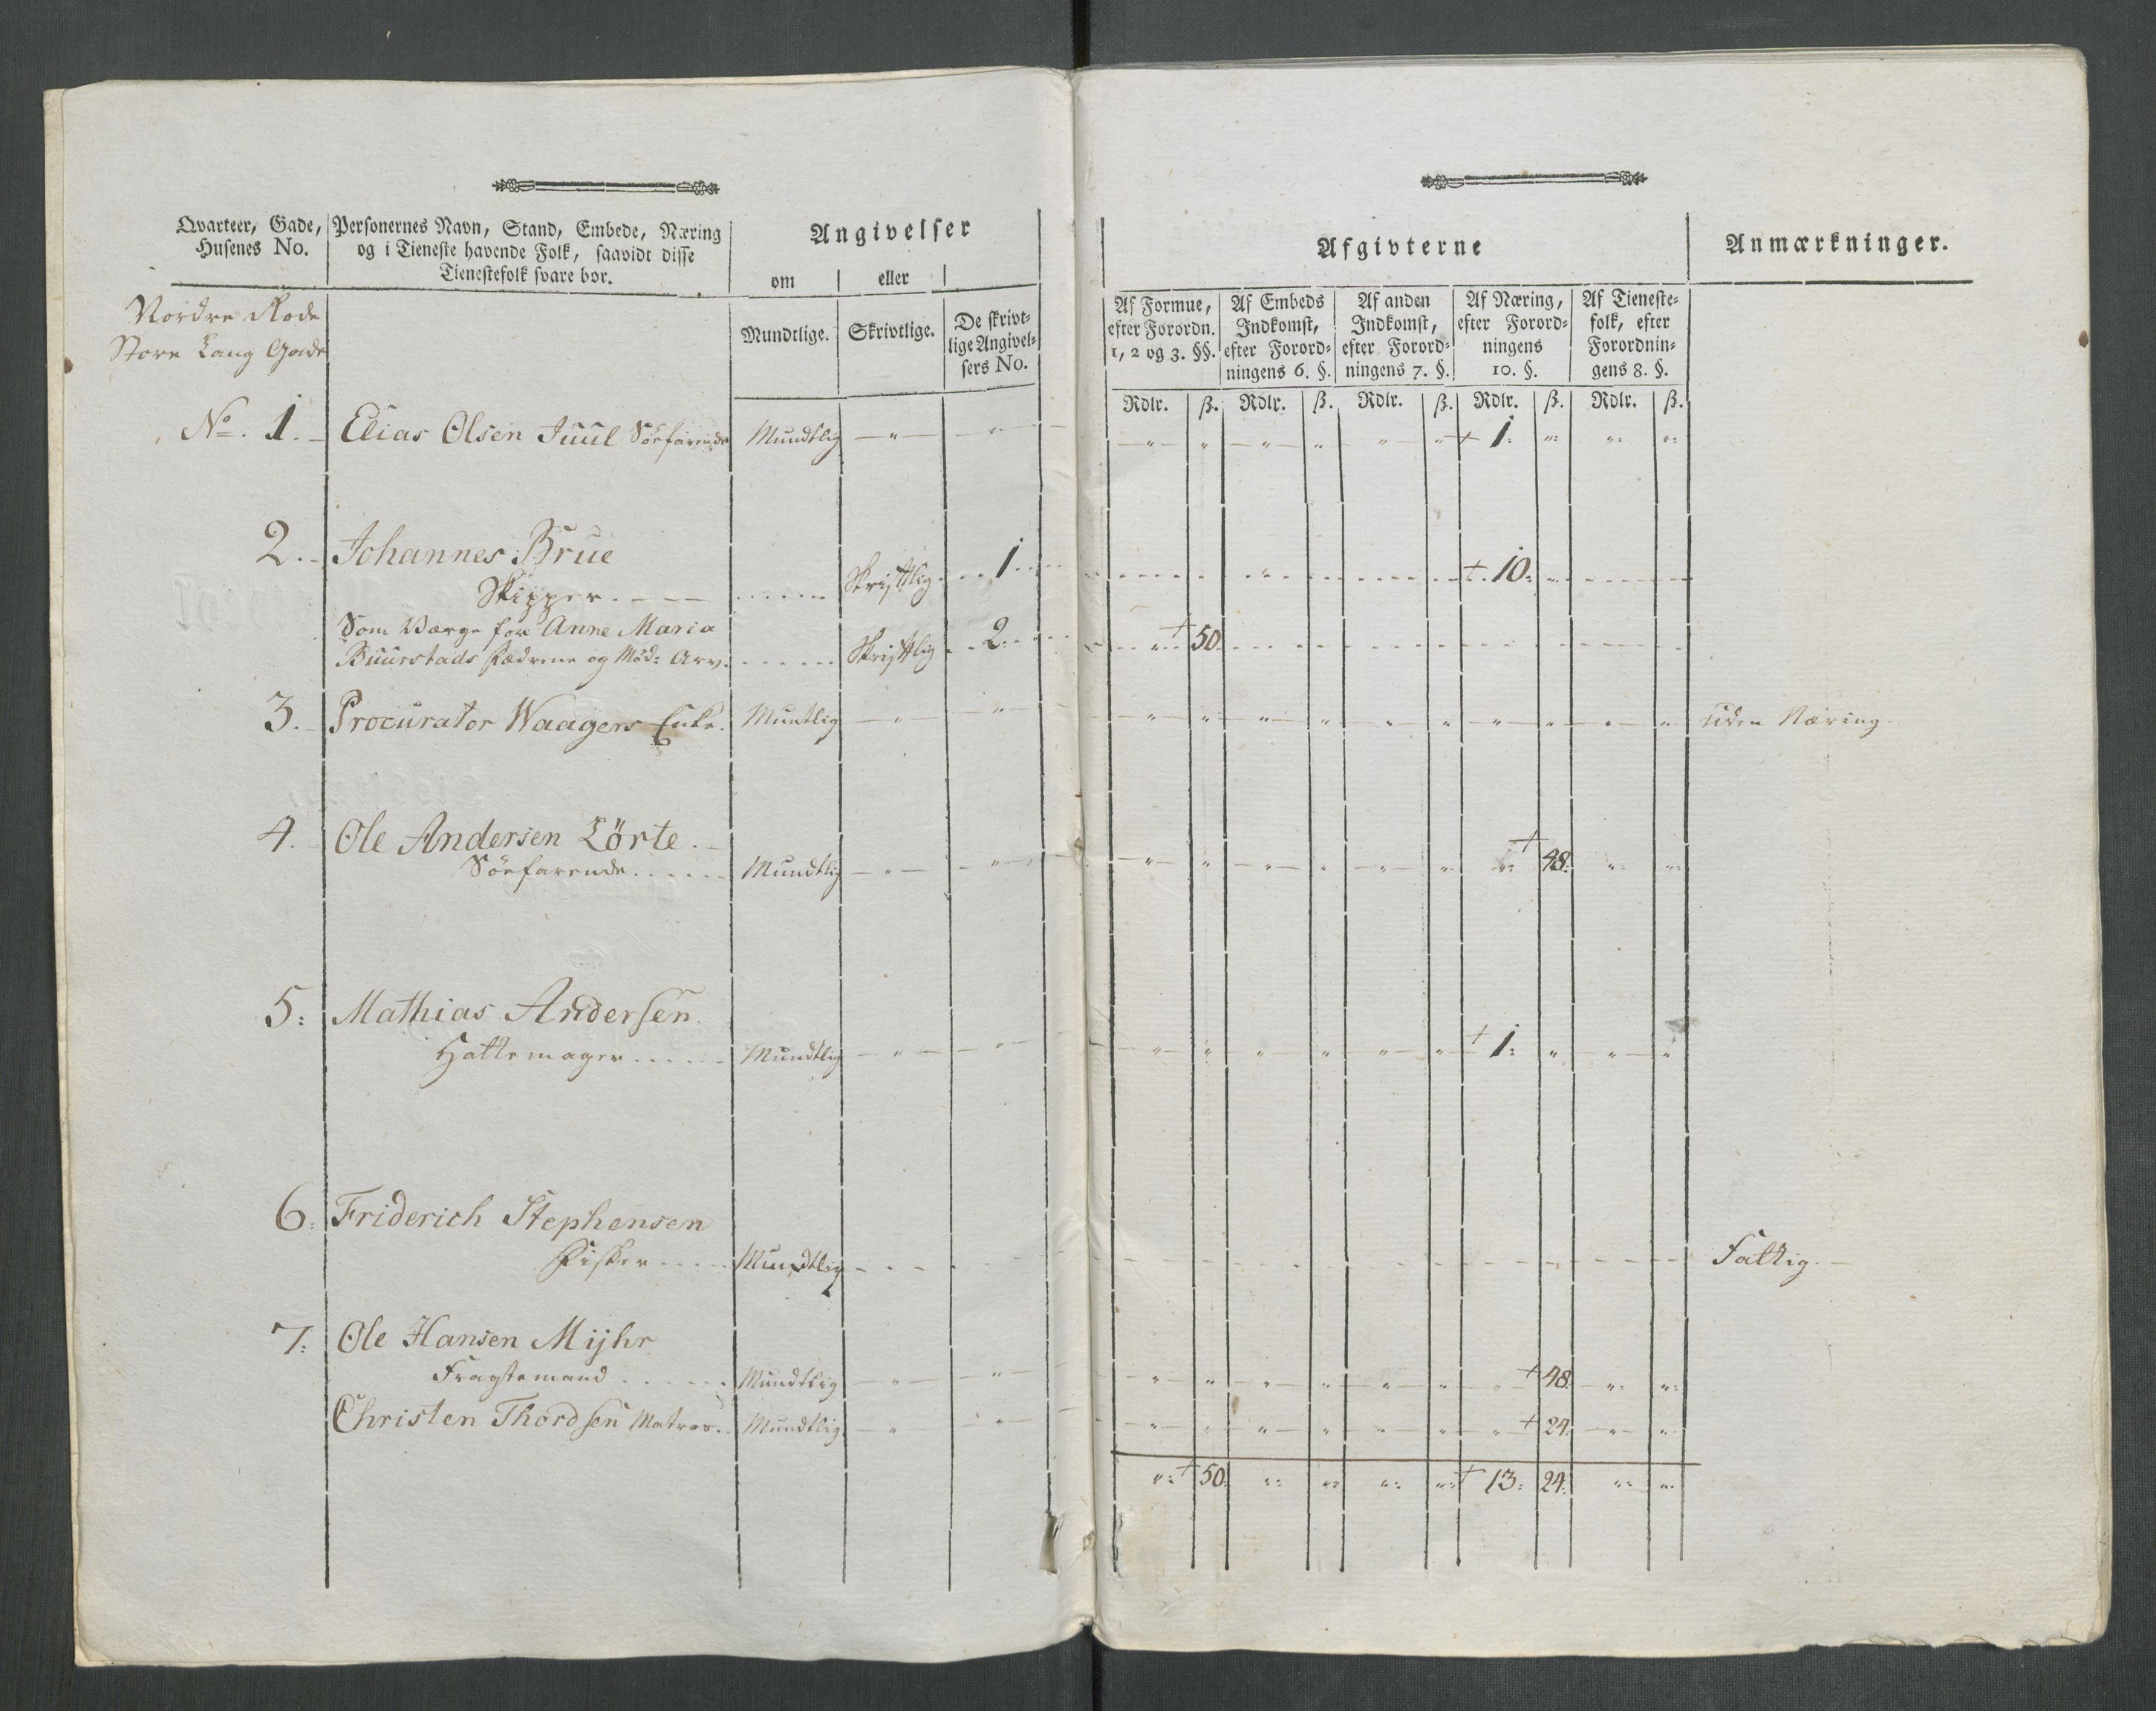 Qvarteer, Gade, Husenes No.
Personernes Navn, Stand, Embede, Næring og i Tieneste havende Folk, saavidt disse Tienestefolk svare bør.
Angivelser
om eller
Mundtlige. Skrivtlige. De skrivtlige Angivelsers No.
Afgivterne
Anmærkninger.
Af Formue, efter Forordn. 1, 2 og 3. §§.
Af Embeds Indkomst, efter Forordningens 6. §.
Af anden Indkomst, efter Forordningens 7. §.
Af Næring, efter Forordningens 10. §.
Af Tienestefolk, efter Forordningens 8. §.
Rdlr. ß. Rdlr. ß. Rdlr. ß. Rdlr. ß. Rdlr. ß.
Nordre Rode
Store Lang Gade
No. 1. Elias Olsen Juul Söefarende Mundtlig — " — " " " " " " " + 1: ": ": ":
2. Johannes Brue
Skipper Skriftlig 1 + 10:
Som Værge for Anne Maria
Buurstads Fædrene og Möd: Arv. Skriftlig 2 + 50
3. Procurator Waagers Enke. Muntlig — " — " " " " " " " " " " " uden Næring
4. Ole Andersen Lörte.
Söefarende Mundtlig — " — " " " " " " " ": + 48: ": ":
5: Mathias Andersen
Hattemager Mundtlig — " — " " " " " " " + 1: " " "
6: Friderich Stephensen
Fisker Mundtlig Fattig.
7: Ole Hansen Mijhr
Fragtemand Mundtlig — " — " " " " " " " " + 48 ": ":
Christen Thordsen Matros. Mundtlig — " — " " " " " " " " + 24: " "
": + 50: ": ": ": ": + 13: 24. ": ":